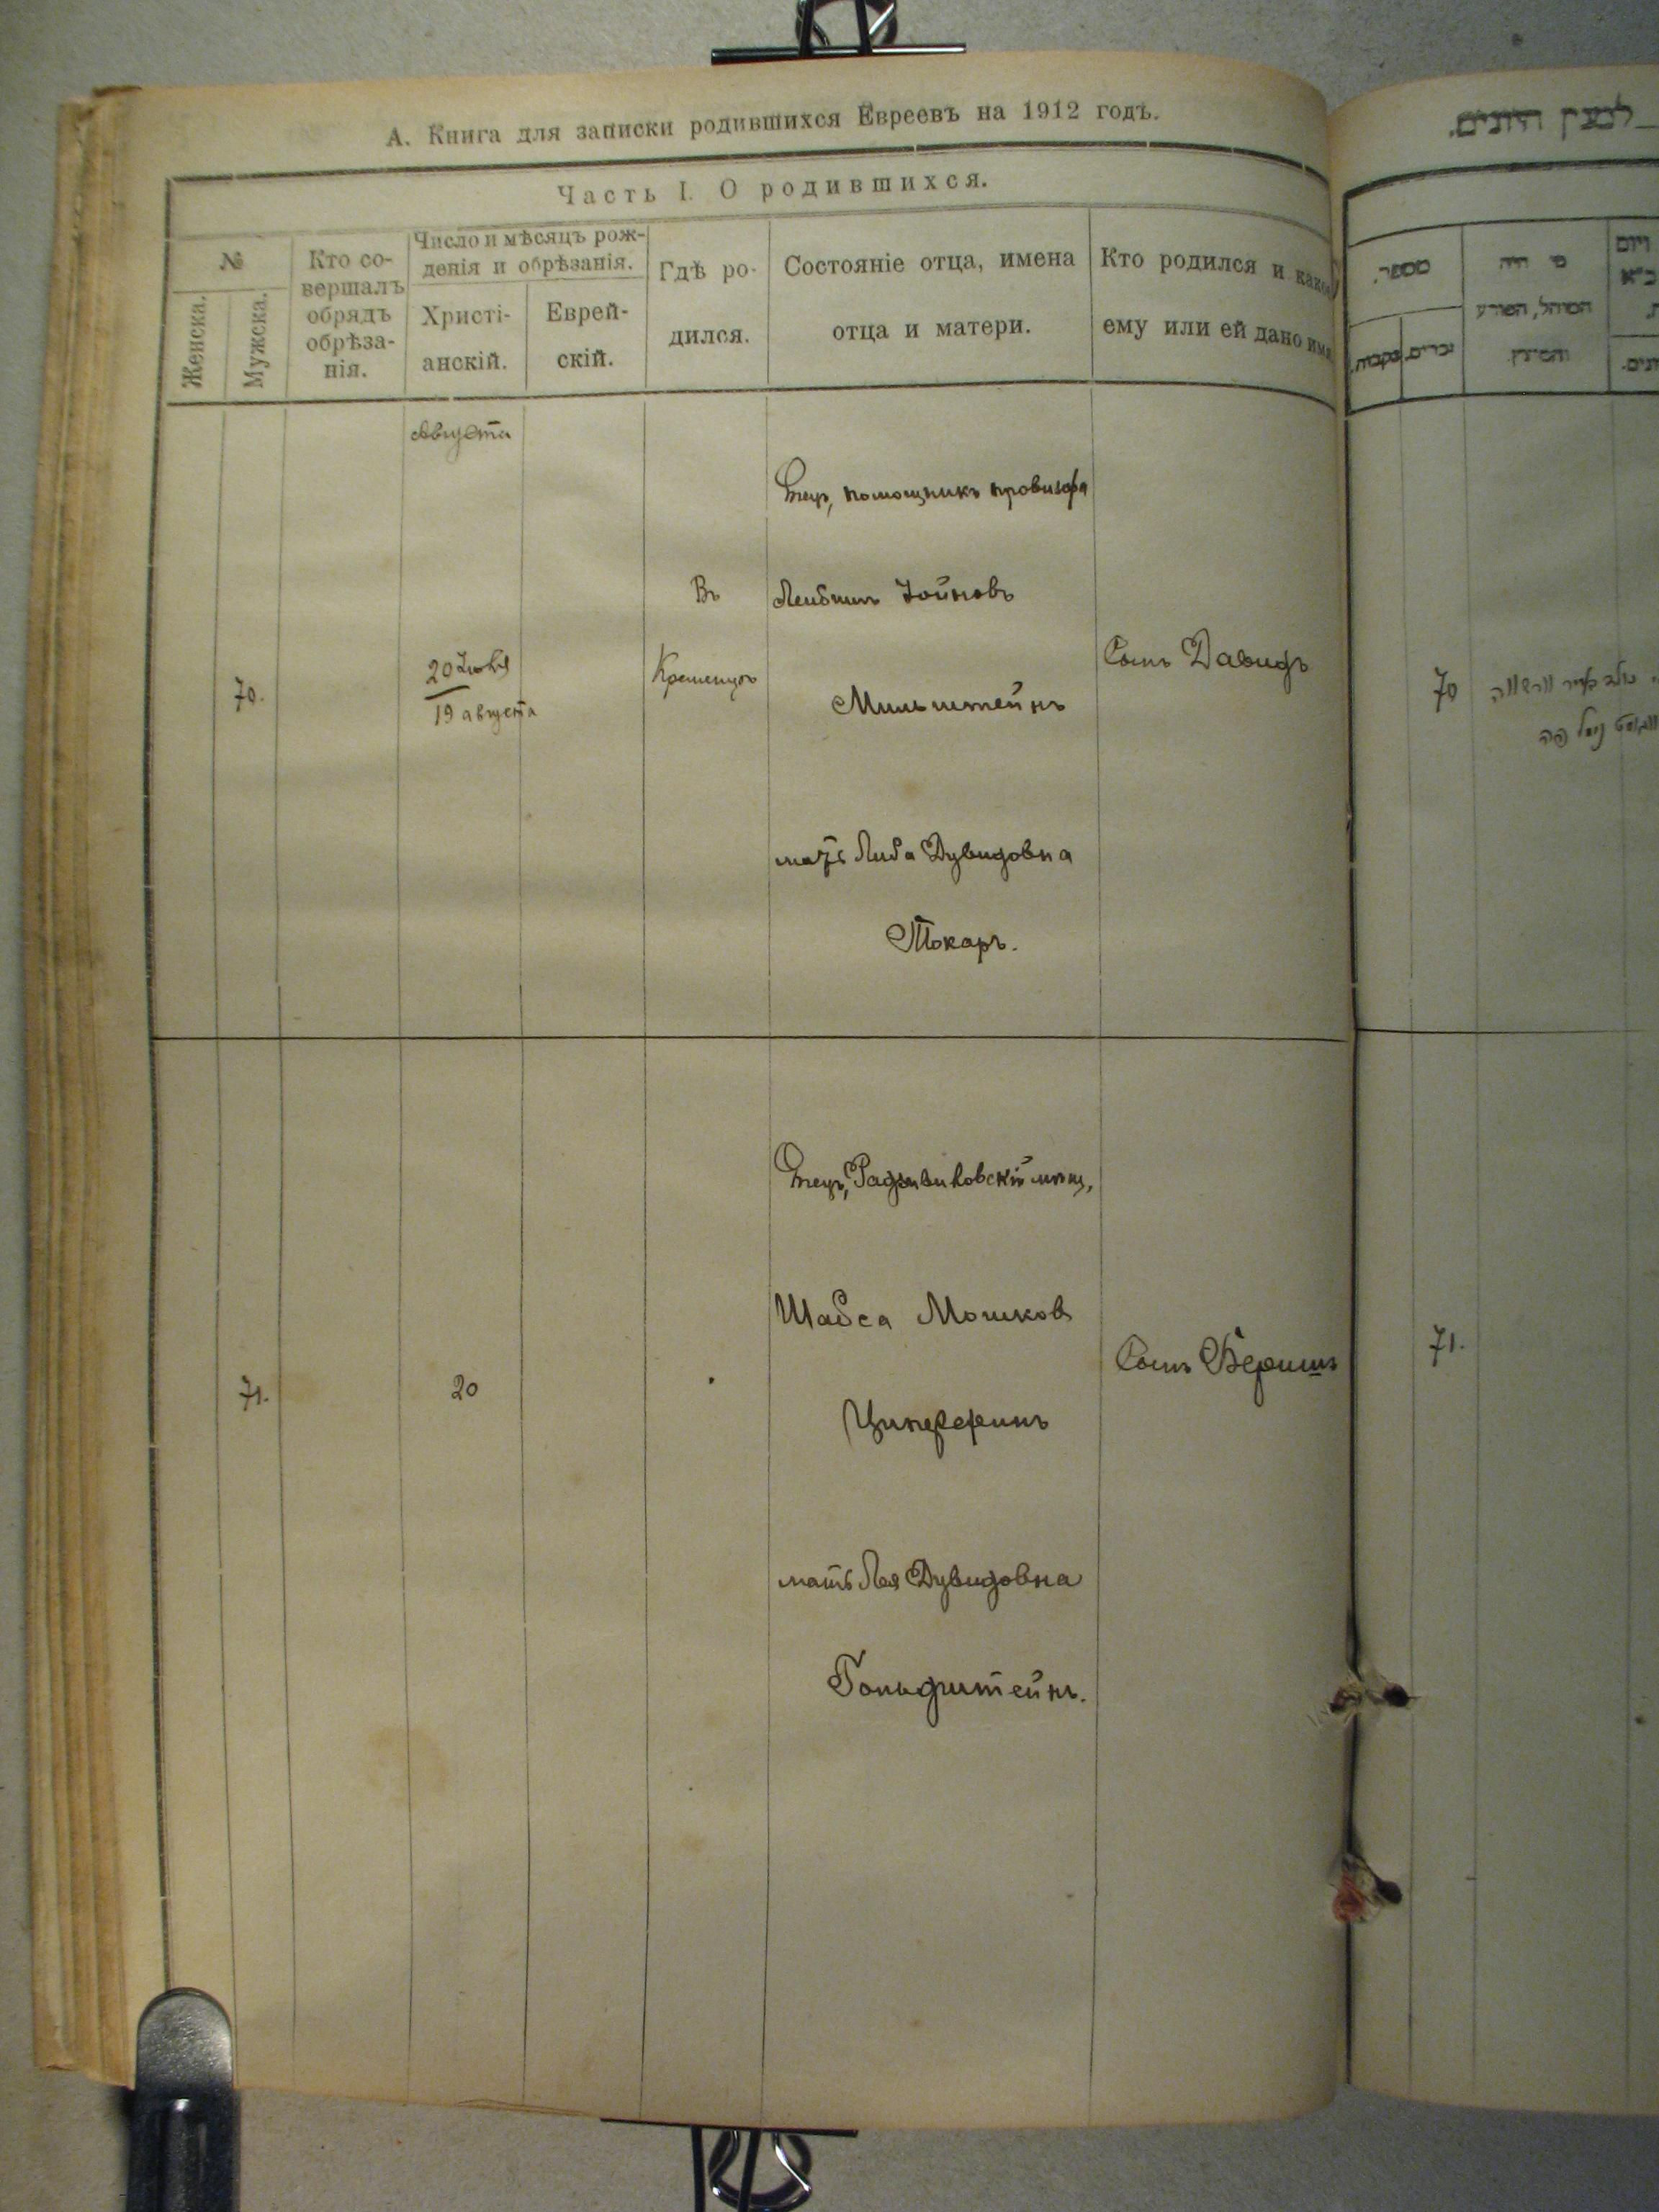 А. Книга для записки родившихся Евреевъ на 1912 годъ.
Часть I. О родившихся.
№
Женска.
Мужска.
Кто со-
вершалъ
обрядъ
обрѣза-
нія.
Число и мѣсяцъ рож-
денія и обрѣзанія.
Христі-
анскій.
Еврей-
скій.
Гдѣ ро-
дился.
Состояніе отца, имена
отца и матери.
Кто родился и какое
ему или ей дано имя
Августа
70.
20 Іюля
19 августа
Въ
Кременцѣ
Отец, помощникъ провизора
Лейбишъ Іойновъ
Мильштейнъ
мать Либа Дувидовна
Токаръ.
Сынъ Давидъ
71.
20
Отец, Радзивиловскій мѣщ,
Шабса Мошков
Циперфинъ
мать Лея Дувидовна
Гольдштейнъ.
Сынъ Беришъ
מספר.
זכרים.
נקבות.
מי היה
המוהל, הפורע
והמוצץ.
70
71.